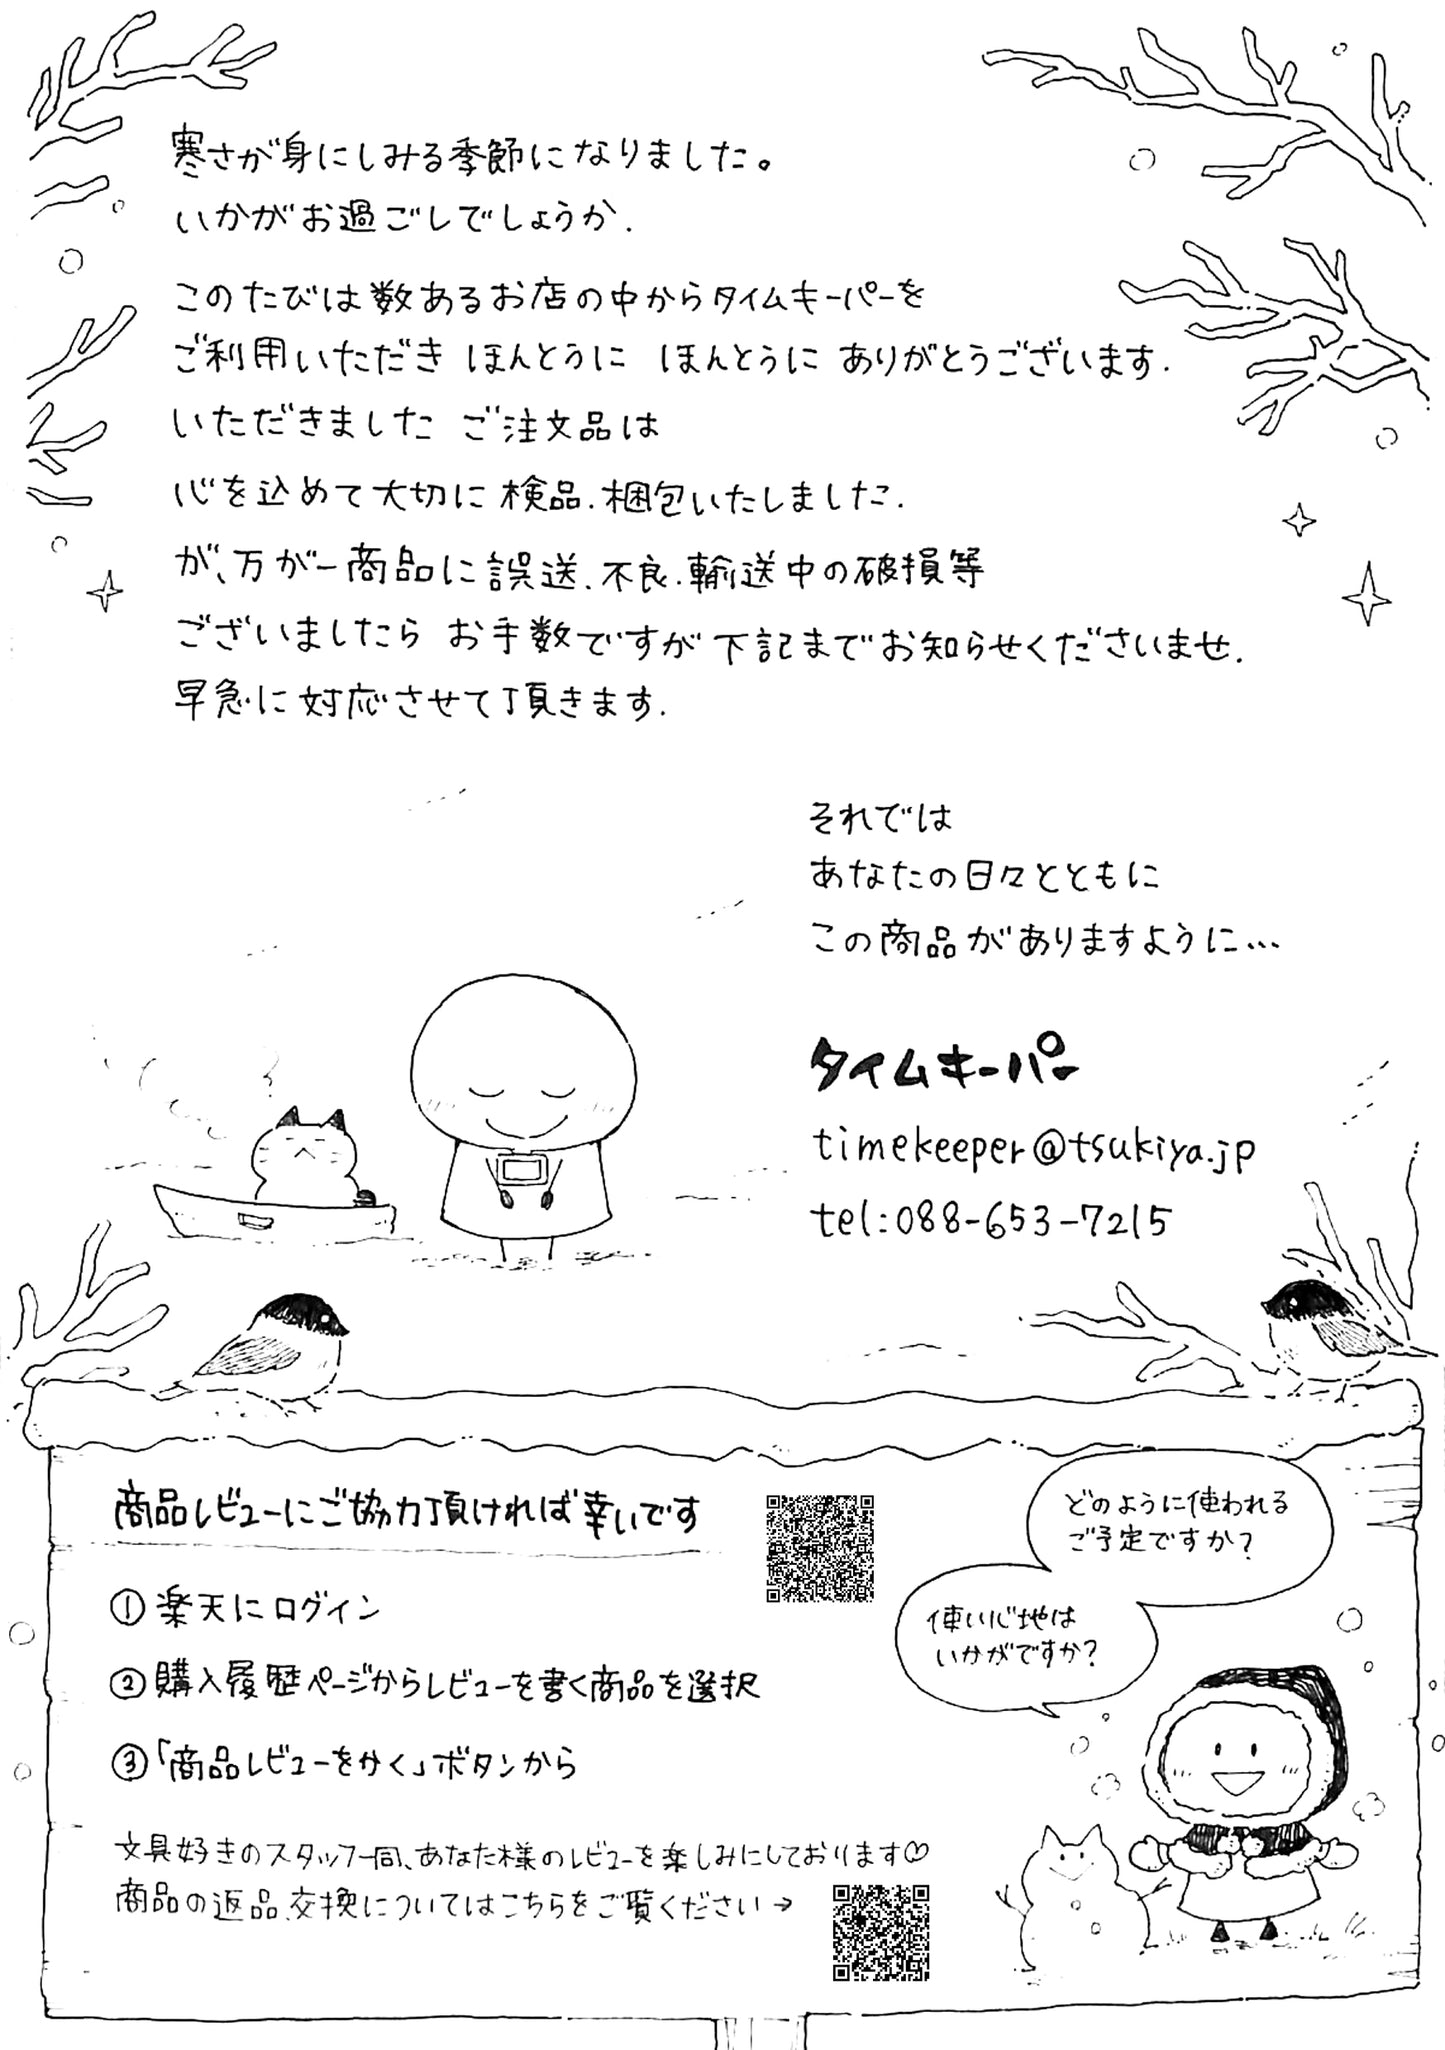 寒さが身にしみる季節になりました。
いかがお過ごしでしょうか.
このたびは数あるお店の中からタイムキーパーを
ご利用いただき ほんとうに ほんとうに ありがとうございます.
いただきました ご注文品は
心を込めて大切に検品.梱包いたしました.
が、万が一商品に誤送.不良.輸送中の破損等
ございましたら お手数ですが下記までお知らせくださいませ.
早急に対応させて頂きます.
それでは
あなたの日々とともに
この商品がありますように…
タイムキーパー
timekeeper@tsukiya.jp
tel:088-653-7215
商品レビューにご協力頂ければ幸いです
①楽天にログイン
②購入履歴ページからレビューを書く商品を選択
③「商品レビューをかく」ボタンから
文具好きのスタッフ一同、あなた様のレビューを楽しみにしております♡
商品の返品.交換についてはこちらをご覧ください→
どのように使われる
ご予定ですか?
使い心地は
いかがですか?